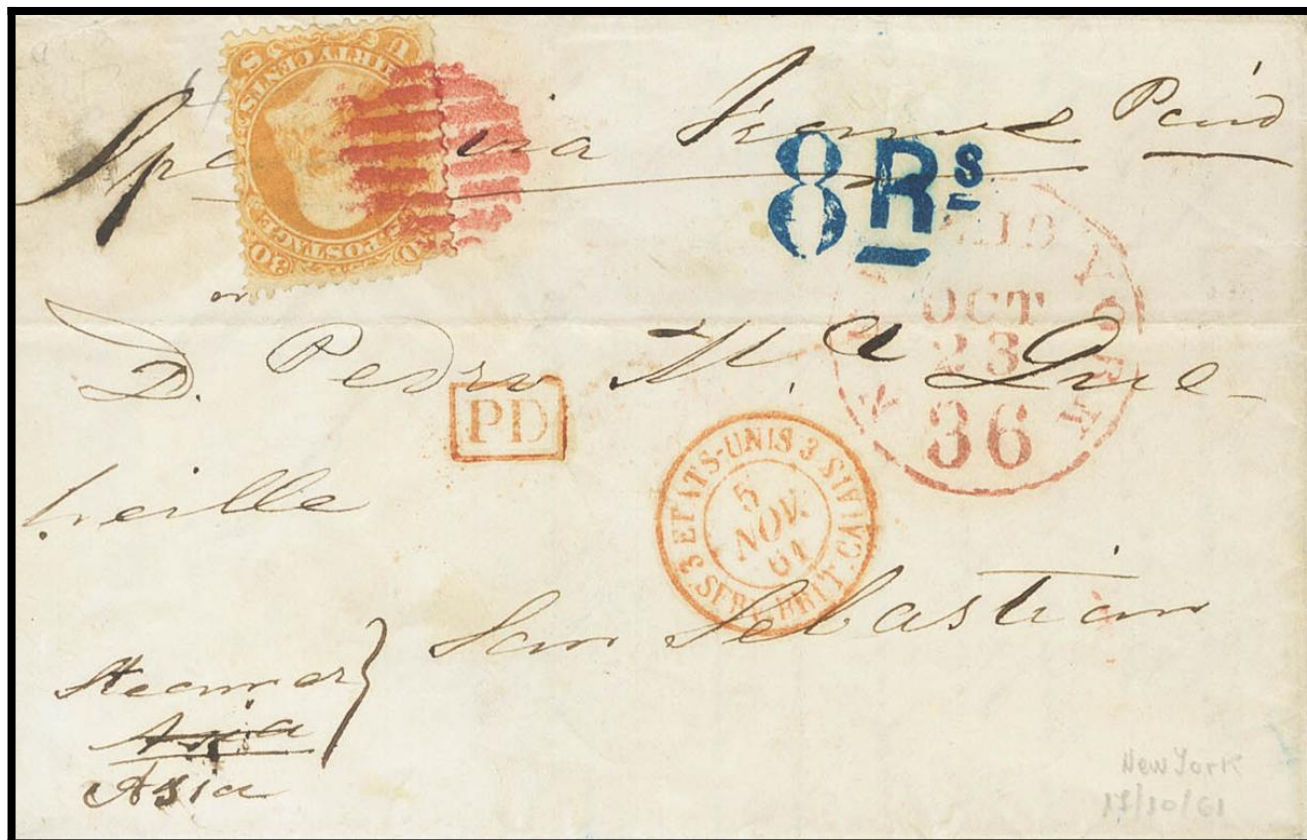 U S
THIRTY CENTS
U.S. POSTAGE
30
via France Paid
8 Rs
PAID
NEW YORK
OCT
23
36
D. Pedro M.a Que-
heille
PD
3 ETATS-UNIS 3
SERV. BRIT. CALAIS
5
NOV.
61
San Sebastian
Steamer
Asia
Asia
New York
17/10/61